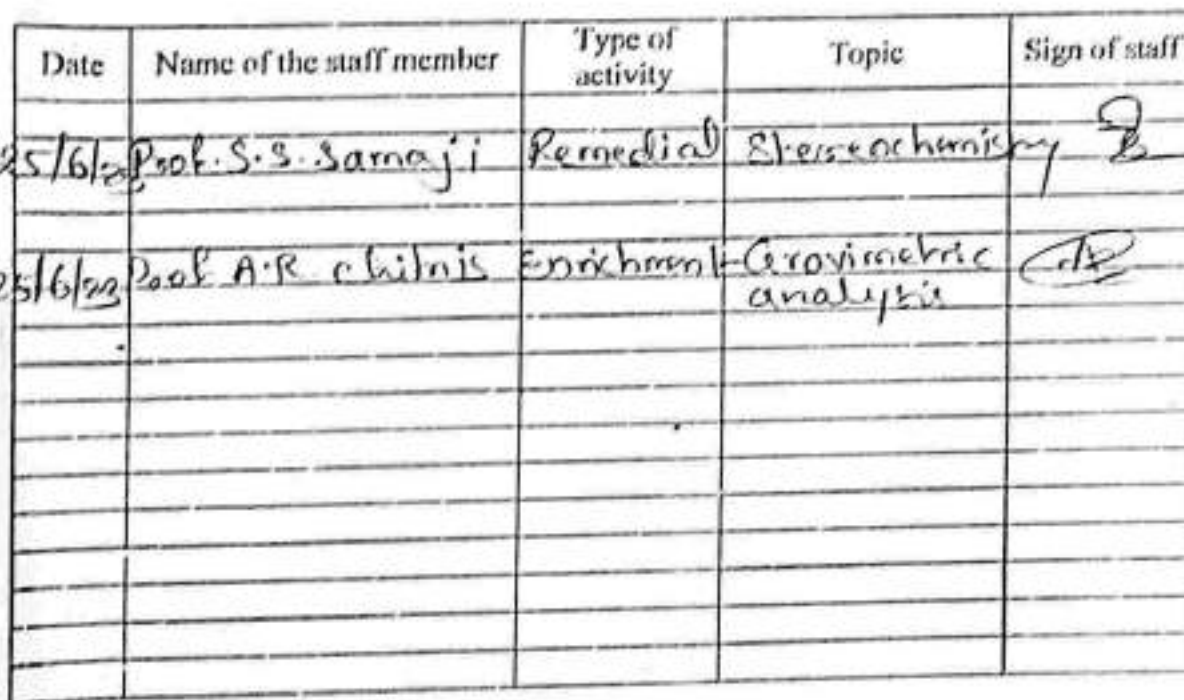 Date Name of the staff member Type of activity Topic Sign of staff
25/6/23 Prof. S.S. Samaji Remedial Stereochemistry
25/6/23 Prof A.R chitnis Enrichment Gravimetric
analysis